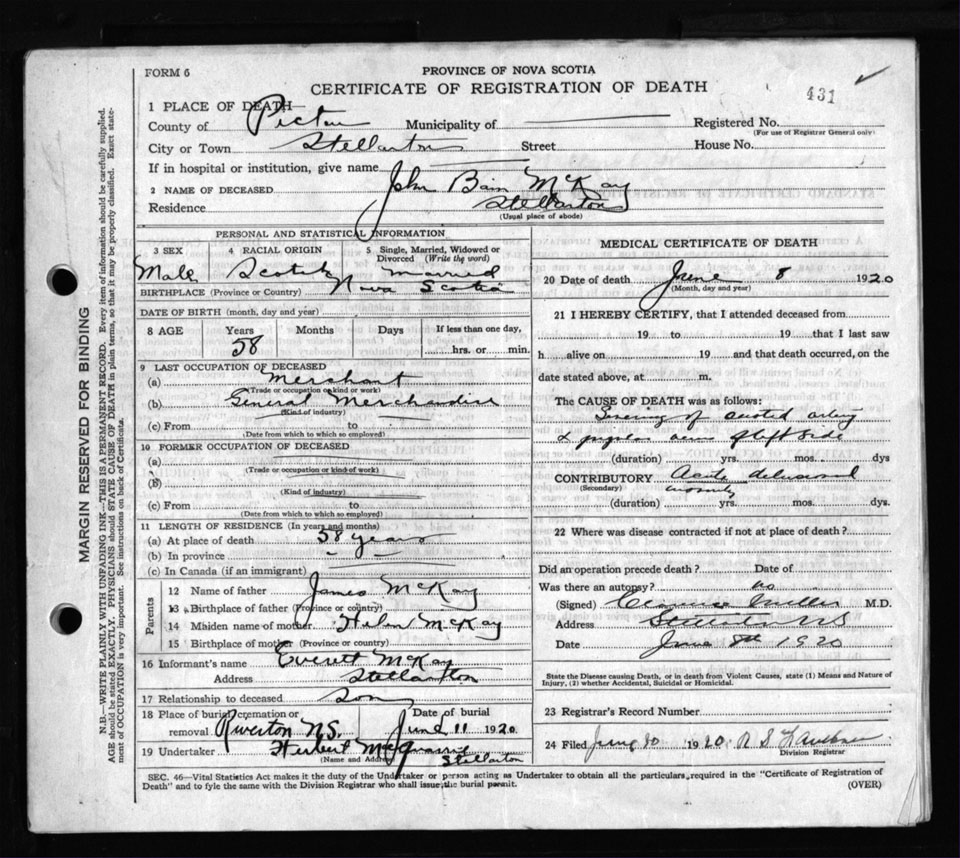 FORM 6
PROVINCE OF NOVA SCOTIA
CERTIFICATE OF REGISTRATION OF DEATH
431
1 PLACE OF DEATH
County of Pictou Municipality of
Registered No.
(For use of Registrar General only)
City or Town Stellarton Street House No.
If in hospital or institution, give name
2 NAME OF DECEASED John Bain McKay
Residence Stellarton
(Usual place of abode)
PERSONAL AND STATISTICAL INFORMATION
3 SEX 4 RACIAL ORIGIN 5 Single, Married, Widowed or Divorced (Write the word)
Male Scotch Married
BIRTHPLACE (Province or Country) Nova Scotia
DATE OF BIRTH (month, day and year)
8 AGE Years Months Days If less than one day,
58 hrs. or min.
9 LAST OCCUPATION OF DECEASED
(a) Merchant
(Trade or occupation or kind or work)
(b) General Merchandise
(Kind of industry)
(c) From to
(Date from which to which so employed)
10 FORMER OCCUPATION OF DECEASED
(a)
(Trade or occupation or kind of work)
(B)
(Kind of industry)
(c) From to
(Date from which to which so employed)
11 LENGTH OF RESIDENCE (In years and months)
(a) At place of death 58 years
(b) In province
(c) In Canada (if an immigrant)
Parents
12 Name of father James McKay
13 Birthplace of father (Province or country)
14 Maiden name of mother Helen McKay
15 Birthplace of mother (Province or country)
16 Informant's name Everett McKay
Address Stellarton
17 Relationship to deceased Son
18 Place of burial cremation or removal Riverton N.S.
Date of burial June 11 1920
19 Undertaker Herbert
(Name and Address) Stellarton
MEDICAL CERTIFICATE OF DEATH
20 Date of death June 8 1920
(Month, day and year)
21 I HEREBY CERTIFY, that I attended deceased from
19 to 19 that I last saw
h alive on 19 and that death occurred, on the
date stated above, at m.
The CAUSE OF DEATH was as follows:
Severing of carotid artery
& left side
(duration) yrs. mos. dys
CONTRIBUTORY Acute delusional
(Secondary) insanity
(duration) yrs. mos. dys.
22 Where was disease contracted if not at place of death?
Did an operation precede death? Date of
Was there an autopsy? no
(Signed) Clarence Miller M.D.
Address Stellarton NS
Date June 8th 1920
State the Disease causing Death, or in death from Violent Causes, state (1) Means and Nature of
Injury, (2) whether Accidental, Suicidal or Homicidal.
23 Registrar's Record Number
24 Filed June 10 1920 R S
Division Registrar
SEC. 46—Vital Statistics Act makes it the duty of the Undertaker or person acting as Undertaker to obtain all the particulars required in the "Certificate of Registration of
Death" and to fyle the same with the Division Registrar who shall issue the burial permit.
(OVER)
MARGIN RESERVED FOR BINDING
N.B.—WRITE PLAINLY WITH UNFADING INK—THIS IS A PERMANENT RECORD. Every item of information should be carefully supplied.
AGE should be stated EXACTLY. PHYSICIANS should STATE CAUSE OF DEATH in plain terms, so that it may be properly classified. Exact state-
ment of OCCUPATION is very important. See instructions on back of Certificate.